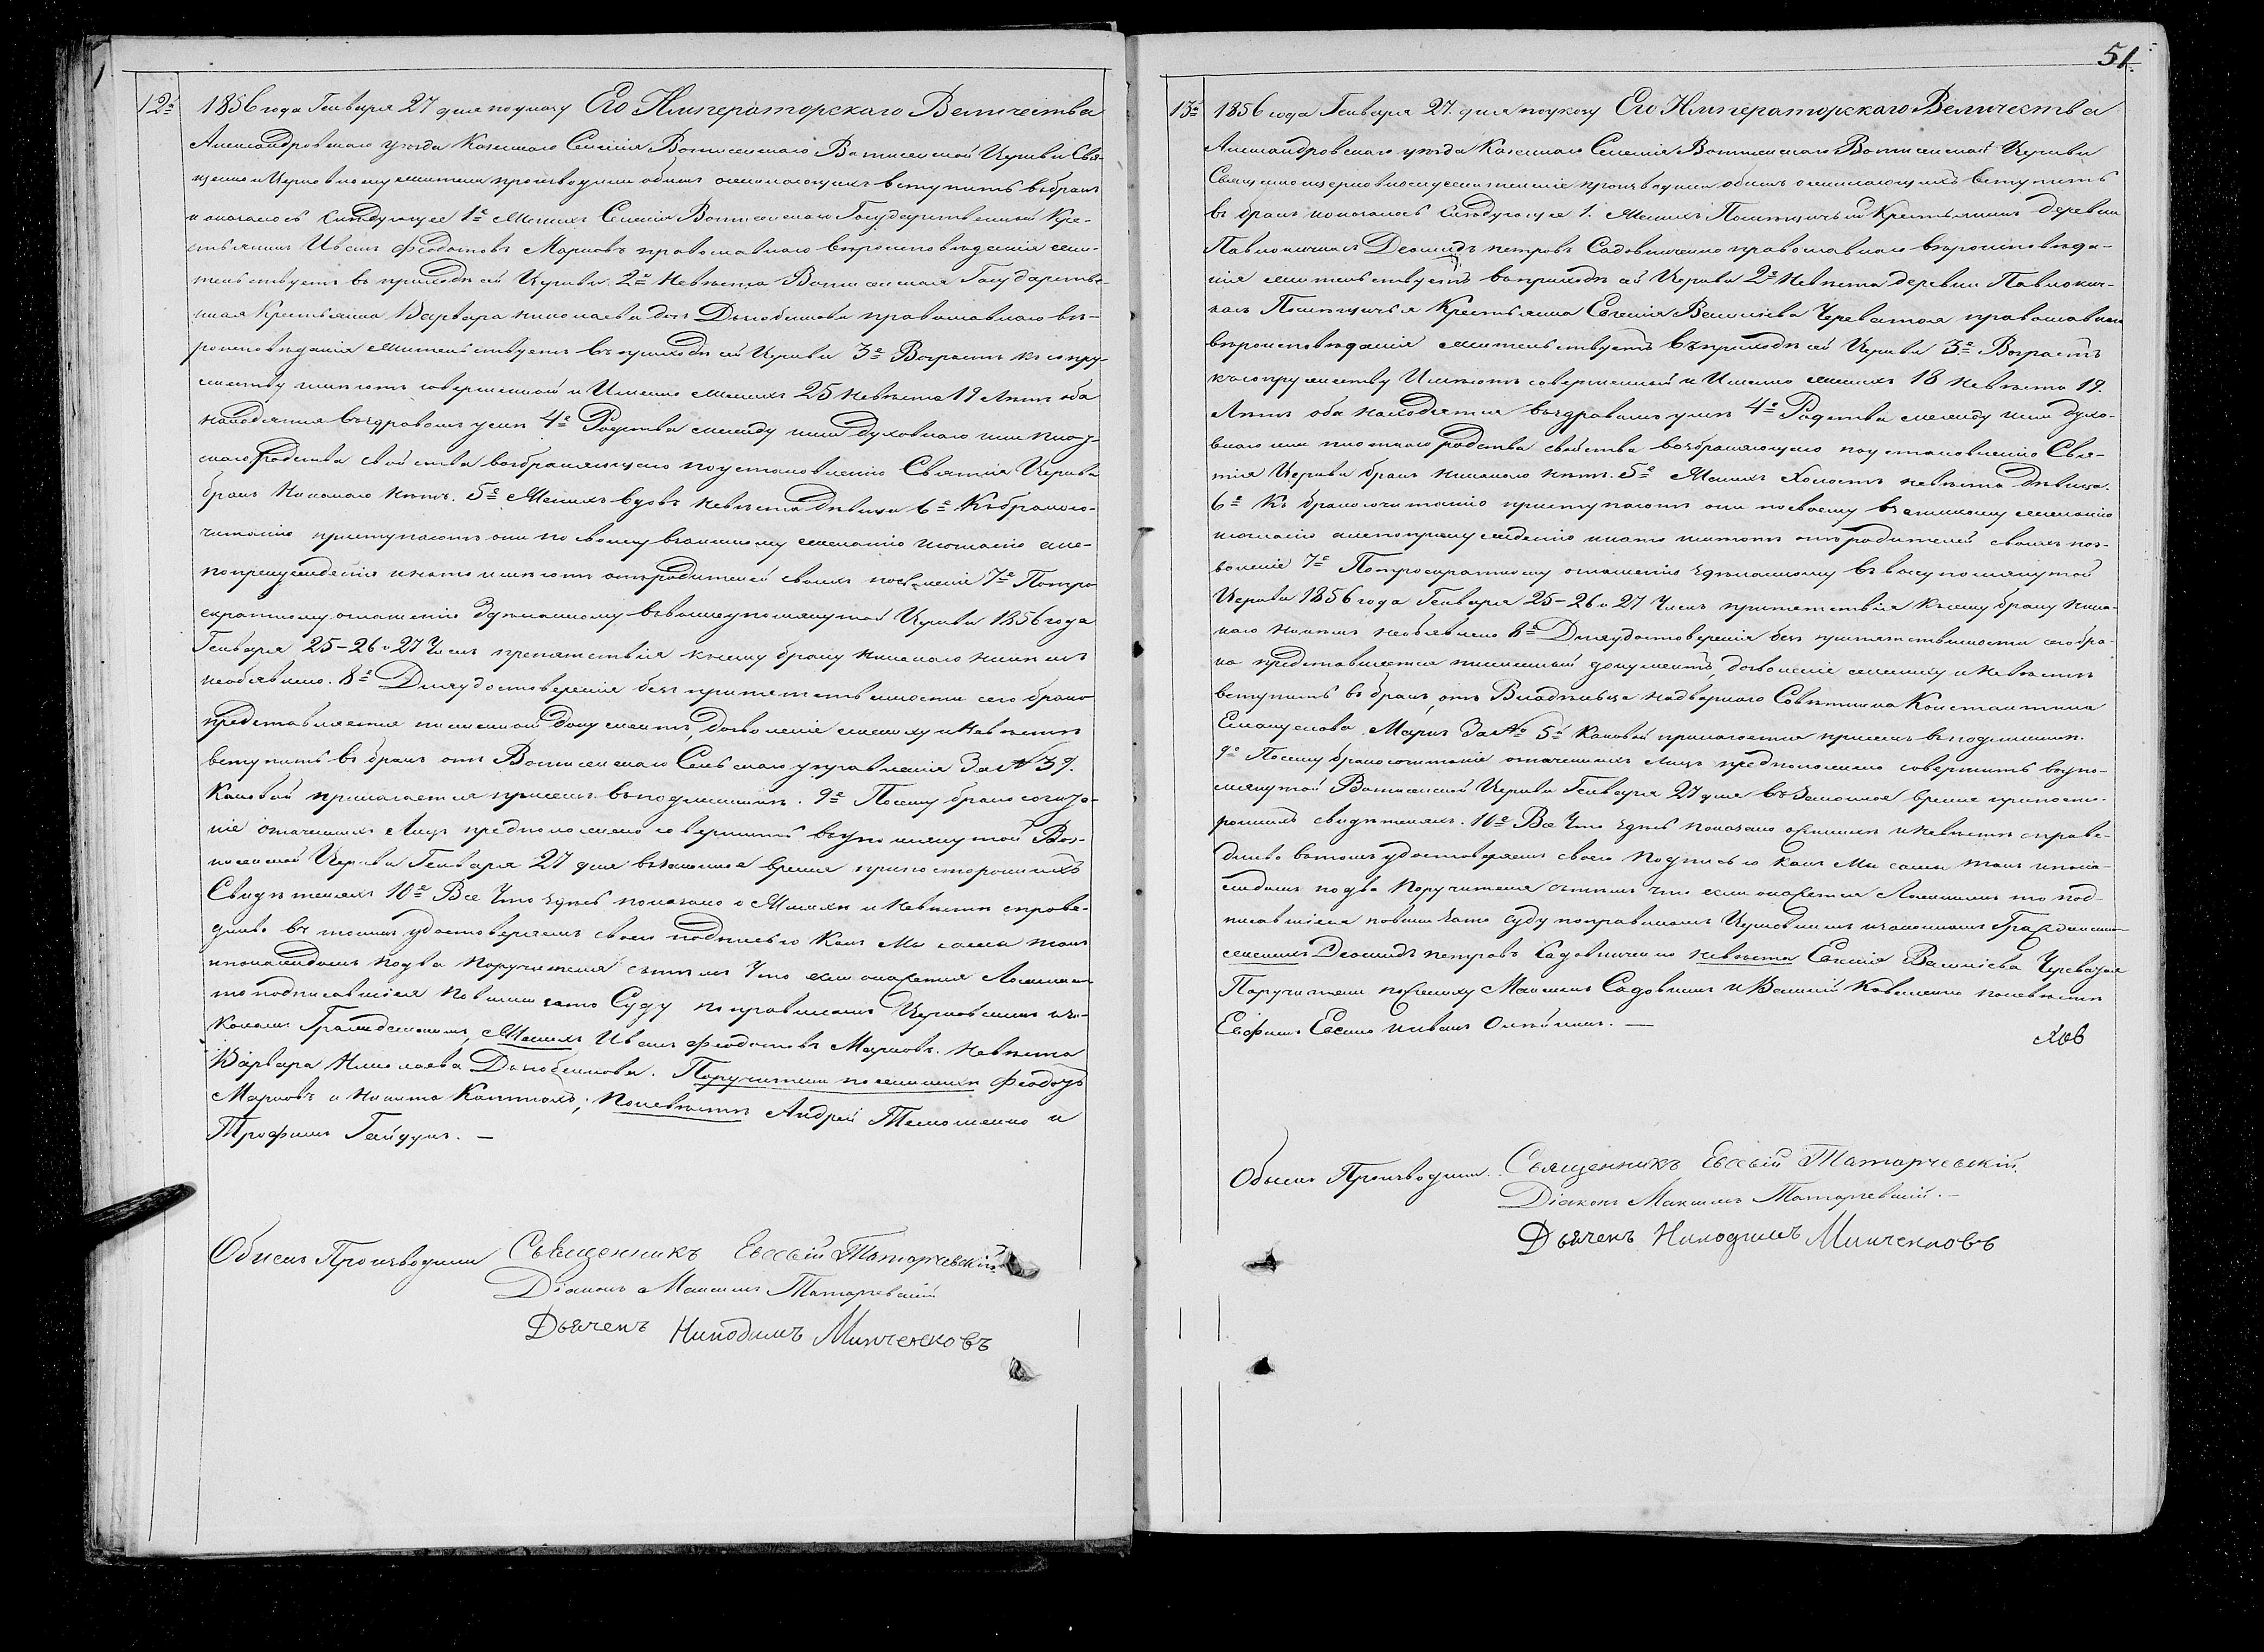 12.
1856 года Генваря 27 дня по указу Его Императорскаго Величества
Александровскаго уезда Казеннаго Селенія Воскресенской Церкви Свя-
щенно и Церковнослужители производили обыскъ о желающихъ вступить въ бракъ
и оказалось следующее 1е Женихъ Селенія Государственный Кре-
стьянинъ Иванъ Феодотовъ Марковъ православнаго вероисповеданія жи-
тельствуетъ въ приходе сей Церкви 2е Невеста Государстве-
нная Крестьянка Варвара николаева дочь православнаго ве-
роисповеданія жительствуетъ въ приходе сей Церкви 3е Возрастъ къ супру-
жеству имеютъ совершенной и Именно женихъ 25 Невеста 19 летъ оба
находятся въ здравомъ уме 4е Родства между ими духовнаго или плот-
скаго родства свойства возбраняющаго по установленію Святыя Церкви
бракъ Никакаго нетъ. 5е Женихъ вдовъ Невеста Девица 6е Къ бракосо-
читанію приступаютъ они по своему взаимному желанію и согласію а не-
по принужденію и на то имеютъ отъ родителей своихъ позволеніе 7е По тро-
екратному оглашенію зделанному въ вышеупомянутой Церкви 1856 года
Генваря 25-26 и 27 Чиселъ препятствія къ сему браку никакаго никемъ
необъявлено. 8е Для удостоверенія безпрепятственности сего брака
представляется писменной документъ, дозволеніе жениху и Невесте
вступить въ бракъ отъ Сельскаго управленія За № 39.
Каковый прилагается при семъ въ подлиннике. 9е По сему бракосочета-
ніе означенныхъ Лицъ предположено совершить въ упомянутой Вос-
Церкви Генваря 27 дня въ законное время при постороннихъ
Свидетеляхъ 10е Все Что здесь показано о Женихе и Невесте справе-
дливо въ томъ удостоверяемъ своею подписью какъ мы сами такъ
и по каждомъ по два Поручителя съ темъ что если окажется Ложнымъ
то подписавшіеся повинны за то Суду по правиламъ Церковнымъ и за-
конамъ Гражданскимъ, Женихъ Иванъ Феодотовъ Марковъ. Невеста
Варвара Николаева. Поручители по женихе Феодотъ
Марковъ и Никита; По невесте Андрей и
Трофимъ Гайдукъ. —
Обыскъ Производили Священникъ Евсевій Татарчевскій
Діаконъ Максимъ Татарчевскій
Дьячекъ Никодимъ Минченковъ
51.
13.
1856 года Генваря 27. дня по указу Его Императорскаго Величества
Александровскаго уезда Казеннаго Селенія Церкви
Священно церковнослужители произведши обыскъ о желающихъ вступить
въ бракъ и оказалось следующее 1. Женихъ Помещичій Крестьянинъ деревни
Диомидъ петровъ Садовниченко православнаго вероисповеда-
нія жительствуетъ въ приходе сей Церкви 2е Невеста деревни
Помещичья Крестьянка Евгенія Василіева Череватая православнаго
вероисповеданія жительствуетъ въ приходе сей Церкви 3е Возрастъ
къ супружеству Имеютъ совершенный и Именно женихъ 18 Невеста 19.
Летъ оба находятся въ здравомъ уме 4е Родства между ими духо-
внаго или плотнаго родства свойства возбраняющаго по установленію Свя-
тыя Церкви бракъ никакаго нетъ. 5е Женихъ Холостъ невеста Девица.
6е Къ бракосочитанію приступаютъ они по своему взаимному желанію
и согласію а не по принужденію и на то имеютъ отъ родителей своихъ поз-
воленіе 7е По троекратному оглашенію зделанному въ вышеупомянутой
Церкви 1856 года Генваря 25-26 и 27 Чиселъ препятствія къ сему браку ника-
каго никемъ необъявлено 8е Для удостоверенія безпрепятственности сего бра-
ка представляется писменный документъ, дозволеніе жениху и Невесте
вступить въ бракъ, отъ Владельца надворнаго Советника Константина
За № 5й Каковый прилагается при семъ въ подлиннике.
9е По сему бракосочитаніе означенныхъ Лицъ предположено совершить въ упо-
мянутой Церкви Генваря 27 дня въ Законное время при посто-
роннихъ свидетеляхъ. 10е Все Что здесь показано о Женихе и Невесте справе-
дливо въ томъ удостоверяемъ своею Подписью какъ Мы сами такъ и по ка-
ждомъ по два Поручителя съ темъ что если окажется Ложнымъ то под-
писавшіеся повинны за то суду по правиламъ Церковнымъ и законамъ Гражданским
женихъ Диомидъ петровъ Садовниченко невеста Евгенія Василіева Череватая
Поручители по Жениху Максимъ Садовникъ и Василій Коваленко по невесте
Ефимъ и иванъ —
Обыскъ Производили. Священникъ Евсевій Татарчевскій.
Діаконъ Максимъ Татарчевскій. —
Дьячекъ Никодимъ Минченковъ